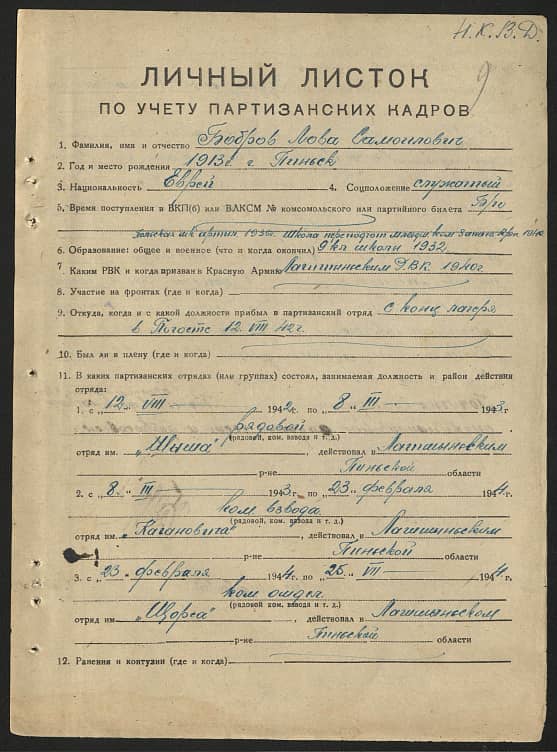 Н.К.В.Д.
9
ЛИЧНЫЙ ЛИСТОК
ПО УЧЕТУ ПАРТИЗАНСКИХ КАДРОВ
1. Фамилия, имя и отчество Бобров Лова Самоилович
2. Год и место рождения 1913г. г. Пиньск
3. Национальность Еврей 4. Соцположение служащый
5. Время поступления в ВКП(б) или ВЛКСМ № комсомольского или партийного билета
1936г. школа
6. Образование: общее и военное (что и когда окончил) 9 кл школы 1932
7. Каким РВК и когда призван в Красную Армию Р.В.К. 1940г
8. Участие на фронтах (где и когда)
9. Откуда, когда и с какой должности прибыл в партизанский отряд с конц лагеря
в Погосте 12. VIII 42г.
10. Был ли в плену (где и когда)
11. В каких партизанских отрядах (или группах) состоял, занимаемая должность и район действия
отряда:
1. с „12„ VIII 1942г. по „8„ III 1943г
рядовой
(рядовой, ком. взвода и т. д.)
отряд им. „Шыша“, действовал в Лагишынским
р-не Пиньской области
2. с „8„ III 1943г. по „23„ февраля 1944г.
ком взвода
(рядовой, ком. взвода и т. д.)
отряд им. „Кагановича“, действовал в Лагишыньском
р-не Пиньской области
3. с „23„ февраля 1944г. по „25„ VII 1944г.
ком отдел.
(рядовой, ком. взвода и т. д.)
отряд им. „Щорса“, действовал в Лагишыньском
р-не Пиньской области
12. Ранения и контузии (где и когда)